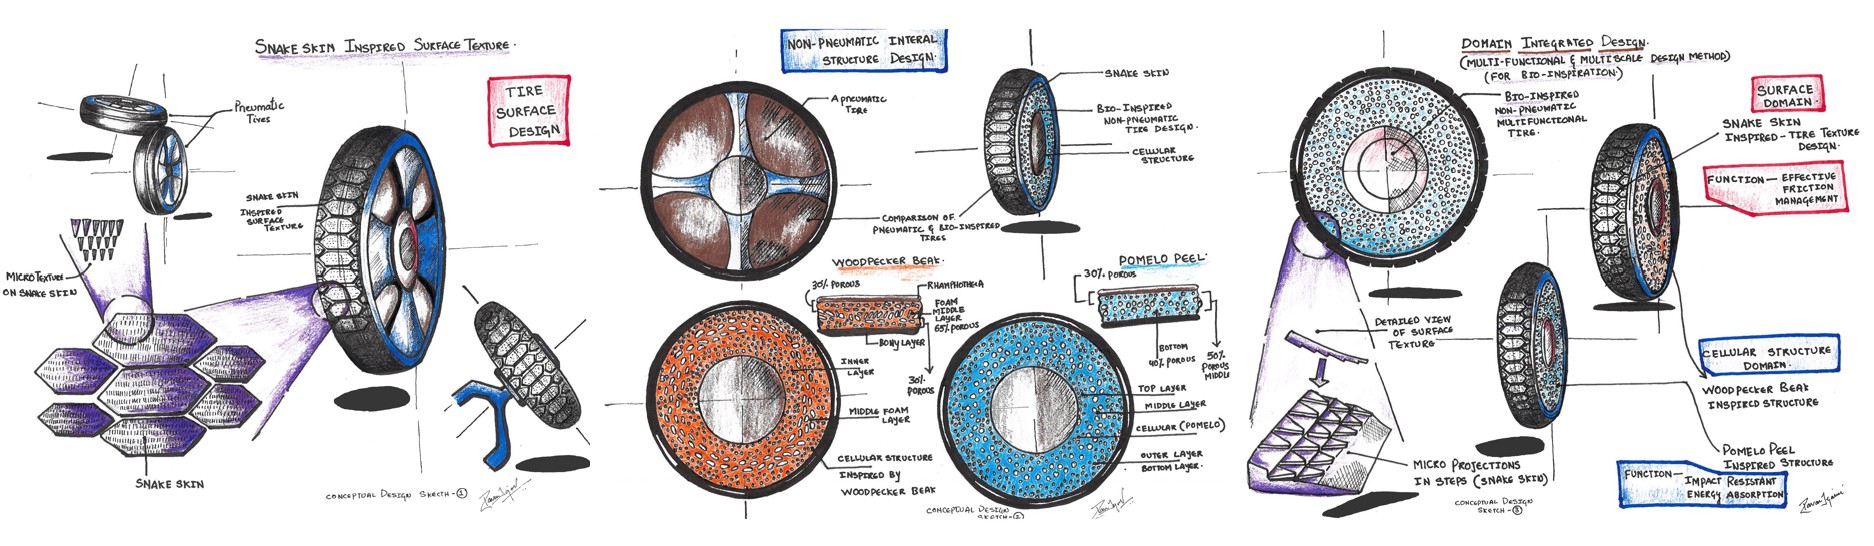 SNAKE SKIN INSPIRED SURFACE TEXTURE.
TIRE
SURFACE
DESIGN
Pneumatic
Tires
SNAKE SKIN
INSPIRED
SURFACE
TEXTURE
MICRO TEXTURE
ON SNAKE SKIN
SNAKE SKIN
CONCEPTUAL DESIGN SKETCH-1
NON-PNEUMATIC INTERAL
STRUCTURE DESIGN.
A PNEUMATIC
TIRE
SNAKE SKIN
BIO-INSPIRED
NON-PNEUMATIC
TIRE DESIGN.
CELLULAR
STRUCTURE
COMPARISON OF
PNEUMATIC & BIO-INSPIRED
TIRES
WOODPECKER BEAK.
30% POROUS
RHAMPHOTHECA
FOAM
MIDDLE
LAYER
65% POROUS
BONY LAYER
30%
POROUS
INNER
LAYER
MIDDLE FOAM
LAYER
CELLULAR STRUCTURE
INSPIRED BY
WOODPECKER BEAK
POMELO PEEL.
30% POROUS
BOTTOM
40% POROUS
50%
POROUS
MIDDLE
TOP LAYER
MIDDLE LAYER
CELLULAR (POMELO)
OUTER LAYER
BOTTOM LAYER.
CONCEPTUAL DESIGN
SKETCH-2
DOMAIN INTEGRATED DESIGN.
(MULTI-FUNCTIONAL & MULTISCALE DESIGN METHOD)
(FOR BIO-INSPIRATION)
BIO-INSPIRED
NON-PNEUMATIC
MULTIFUNCTIONAL
TIRE.
SURFACE
DOMAIN.
SNAKE SKIN
INSPIRED-TIRE TEXTURE
DESIGN.
FUNCTION— EFFECTIVE
FRICTION
MANAGEMENT
DETAILED VIEW
OF SURFACE
TEXTURE
CELLULAR STRUCTURE
DOMAIN.
WOODPECKER BEAK
INSPIRED STRUCTURE
POMELO PEEL
INSPIRED STRUCTURE
MICRO PROJECTIONS
IN STEPS (SNAKE SKIN)
FUNCTION— IMPACT RESISTANT
ENERGY ABSORPTION
CONCEPTUAL DESIGN
SKETCH-3